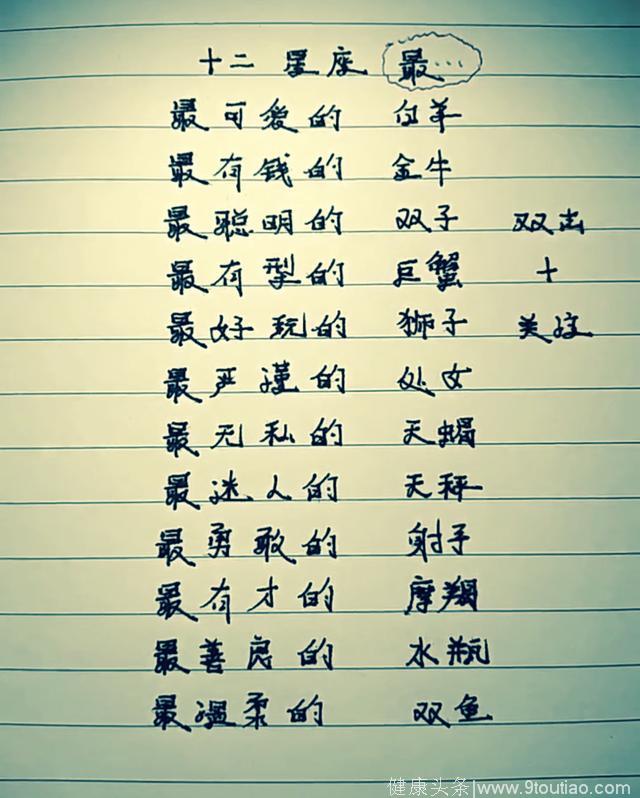 十二星座 最…
最可爱的 白羊
最有钱的 金牛
最聪明的 双子 双击
最有型的 巨蟹 +
最好玩的 狮子 关注
最严谨的 处女
最无私的 天蝎
最迷人的 天秤
最勇敢的 射手
最有才的 摩羯
最善良的 水瓶
最温柔的 双鱼
健康头条|www.9toutiao.com